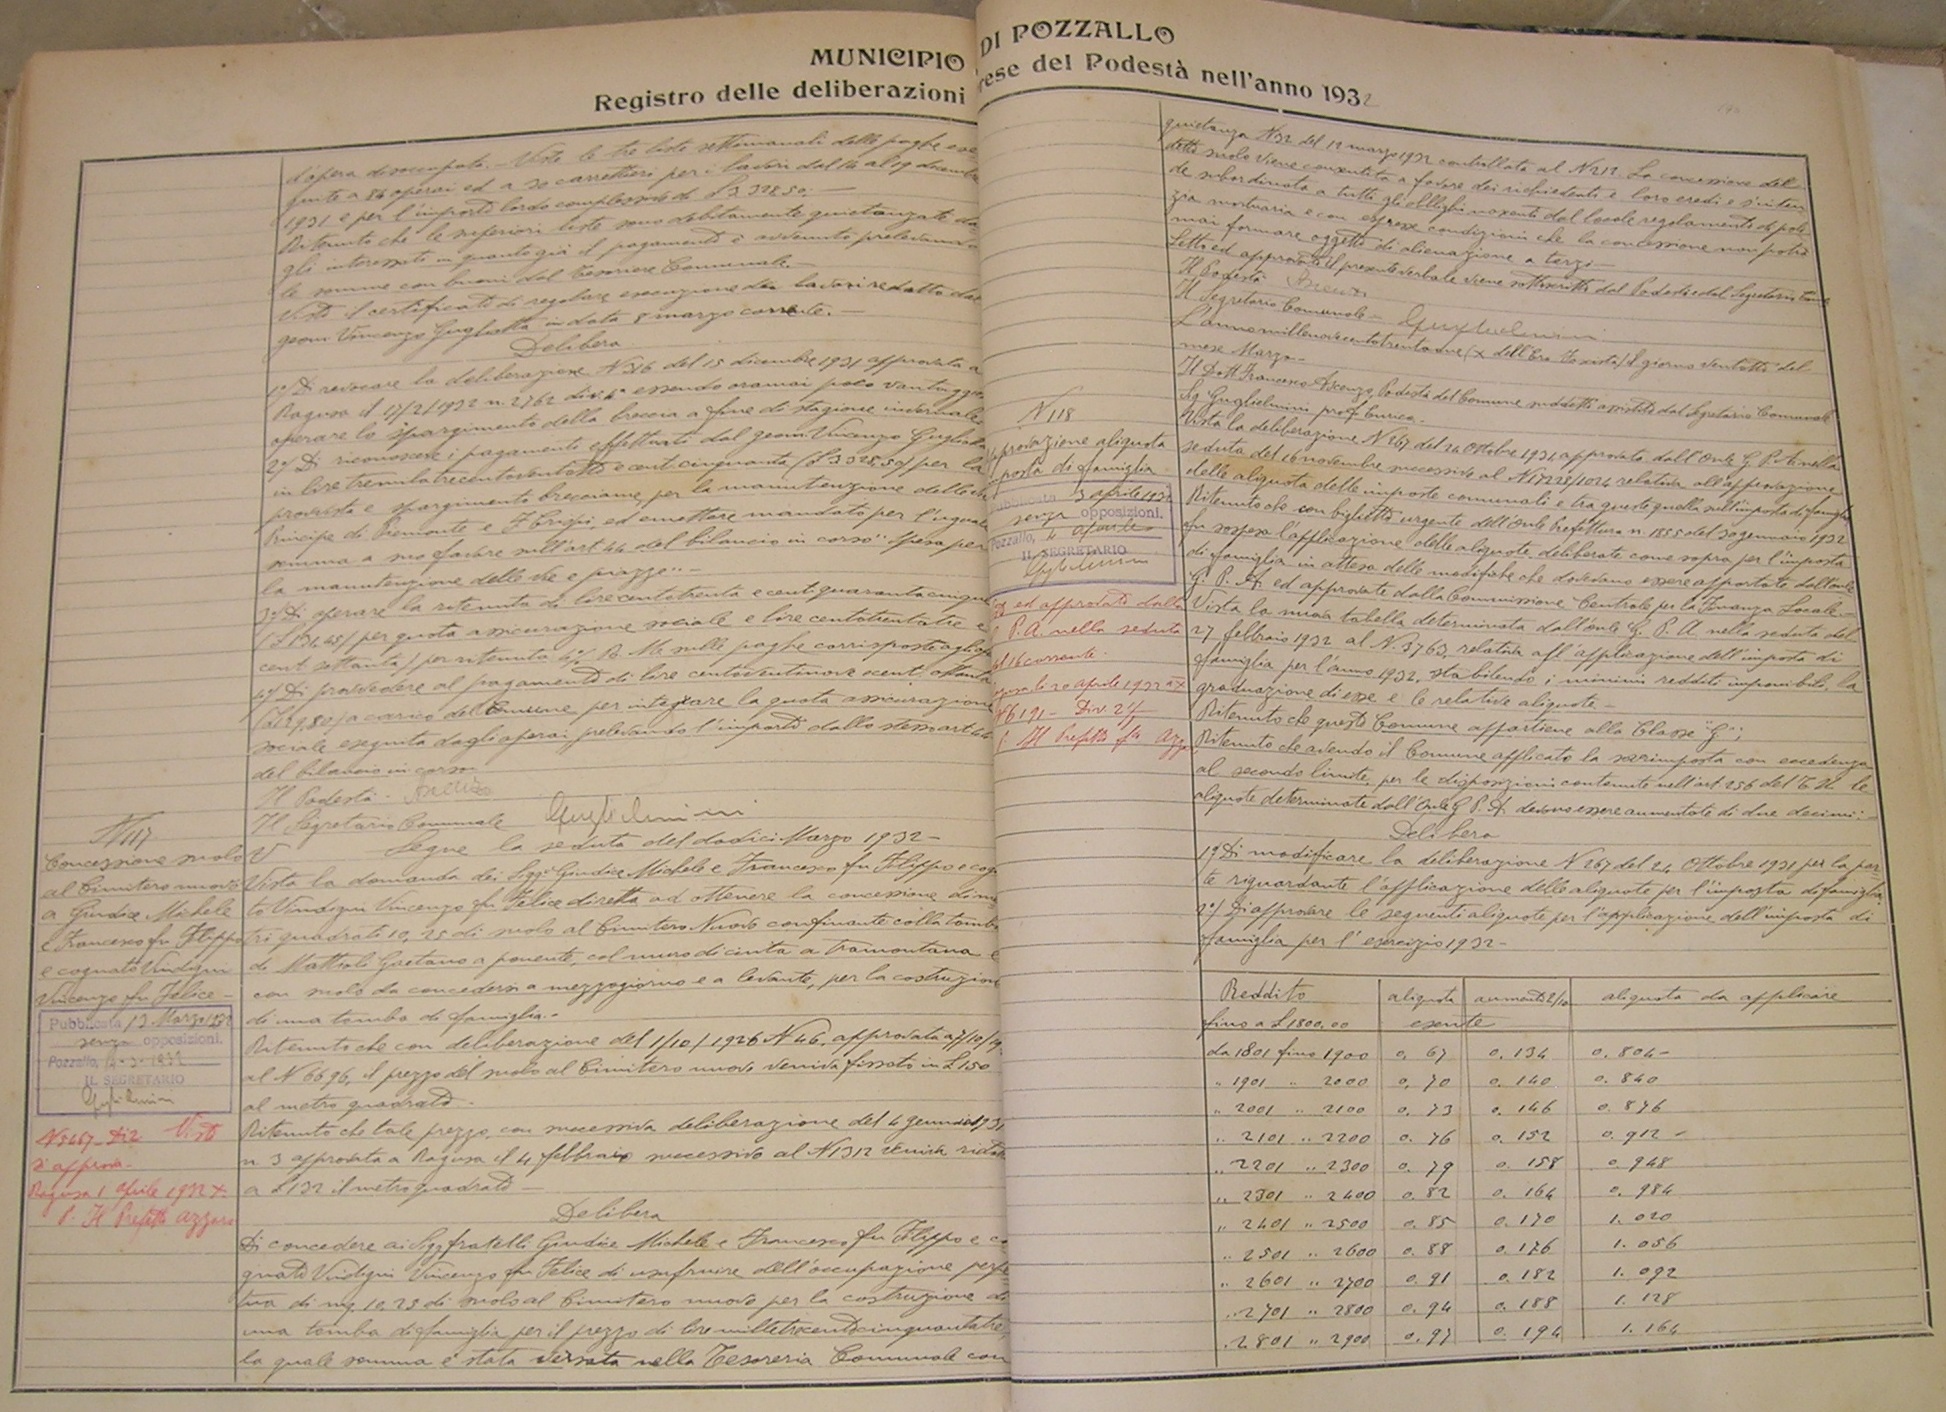 MUNICIPIO DI POZZALLO
Registro delle deliberazioni prese del Podestà nell'anno 1932
d'opera disoccupata. - Viste le tre liste settimanali delle paghe
fatte a 86 operai ed a 30 carrettieri per i lavori dal 14 al 19 dicembre
1931 e per l'importo lordo complessivo di £ 3328.50. -
Ritenuto che le superiori liste sono debitamente quietanzate da
gli interessati in quanto già il pagamento è avvenuto prelevando
le somme con buoni dal Tesoriere Comunale. -
Visto il certificato di regolare esecuzione dei lavori redatto dal
geom. Vincenzo Guglielta in data 8 marzo corrente. -
Delibera
1°) Di revocare la deliberazione N 316 del 15 dicembre 1931 approvata a
Ragusa il 17/2/1932 n. 2762 div. 4ª essendo oramai poco vantaggioso
operare lo spargimento della breccia a fine di stagione invernale
2°) Di riconoscere i pagamenti effettuati dal geom. Vincenzo
in lire tremilatrecentoventotto e cent. cinquanta (£ 3328,50) per la
provvista e spargimento brecciame per la manutenzione delle vie
Principe di Piemonte e F. Crispi, ed emettere mandato per l'uguale
somma a suo favore sull'art 44 del bilancio in corso "Spesa per
la manutenzione delle vie e piazze" -
3°) Di operare la ritenuta di lire centotrenta e cent. quarantacinque
per quota assicurazione sociale e lire centotrentatre e
cent. settanta) per ritenuta 4% R. M. sulle paghe corrisposte agli
4°) Di provvedere al pagamento di lire centoventinove e cent. ottanta
(£ 129,80) a carico del Comune per integrare la quota assicurazione
sociale eseguita dagli operai prelevando l'importo dallo stesso art 44
del bilancio in corso
Il Podestà -
Il Segretario Comunale Guglielmini
N 117
Concessione suolo
al Cimitero nuovo
a Giudice Michele
e Francesco fu Filippo
e cognato Vindigni
Vincenzo fu Felice -
Pubblicata 13 Marzo 1932
senza opposizioni.
Pozzallo,
IL SEGRETARIO
Guglielmini
N 5467 - Div 2 Visto
si approva -
Ragusa 1 aprile 1932 X
p. Il Prefetto
Segue la seduta del dodici Marzo 1932 -
Vista la domanda dei Sigg. Giudice Michele e Francesco fu Filippo e cogna
to Vindigni Vincenzo fu Felice diretta ad ottenere la concessione di me
tri quadrati 10,25 di suolo al Cimitero Nuovo confinante colla tomba
di Gaetano a ponente, col muro di cinta a tramontana e
con suolo da concedersi a mezzogiorno e a levante, per la costruzione
di una tomba di famiglia. -
Ritenuto che con deliberazione del 1/10/1926 N 46, approvata a 7/10/19
al N 6696, il prezzo del suolo al Cimitero nuovo veniva fissato in £ 150
al metro quadrato -
Ritenuto che tale prezzo, con successiva deliberazione del 4 gennaio 193
n. 3 approvata a Ragusa il 4 febbraio successivo al N 1312 veniva ridotto
a £ 132 il metro quadrato -
Delibera
Di concedere ai Sigg. fratelli Giudice Michele e Francesco fu Filippo e co
gnato Vindigni Vincenzo fu Felice di usufruire dell'occupazione perpe
tua di mq. 10,25 di suolo al Cimitero nuovo per la costruzione di
una tomba di famiglia per il prezzo di lire milletrecentocinquantatre
la quale somma è stata versata nella Tesoreria Comunale con
quietanza N 32 del 12 marzo 1932 controllata al N 212. La concessione del
detto suolo viene consentita a favore dei richiedenti e loro eredi e s'inten
de subordinata a tutti gli obblighi inerenti dal locale regolamento di poli
zia mortuaria e con espresse condizioni che la concessione non potrà
mai formare oggetto di alienazione a terzi -
Letto ed approvato il presente verbale viene sottoscritto dal Podestà e dal Segretario
Il Podestà
Il Segretario Comunale - Guglielmini
L'anno millenovecentotrentadue (X dell'Era Fascista) il giorno ventotto del
mese Marzo -
Il Dott Francesco Ascenzo, Podestà del Comune suddetto assistito dal Segretario Comunale
Sig Guglielmini prof. Enrico.
N 118
approvazione aliquota
imposta di famiglia
Pubblicata 3 aprile 1932
senza opposizioni.
Pozzallo, 4 aprile
IL SEGRETARIO
Guglielmini
ed approvato dalla
G. P. A. nella seduta
del 16 corrente.
Ragusa li 20 aprile 1932 X
N 6191 - Div. 2ª
p. Il Prefetto
Vista la deliberazione N 267 del 24 Ottobre 1931 approvata dall'On.le G. P. A. nella
seduta del 16 novembre successivo al N 17228/1024 relativa all'approvazione
delle aliquota delle imposte comunali e tra queste quella sull'imposta di famiglia
Ritenuto che con biglietto urgente dell'On.le Prefettura n. 1855 del 30 gennaio 1932
fu sospesa l'applicazione delle aliquote deliberate come sopra per l'imposta
di famiglia in attesa delle modifiche che dovevano essere apportate dall'on.le
G. P. A. ed approvate dalla Commissione Centrale per la Finanza Locale. -
Vista la nuova tabella determinata dall'on.le G. P. A nella seduta del
27 febbraio 1932 al N. 3763, relativa all'applicazione dell'imposta di
famiglia per l'anno 1932, stabilendo i minimi redditi imponibili, la
graduazione di esse e le relative aliquote. -
Ritenuto che questo Comune appartiene alla Classe "G";
Ritenuto che avendo il Comune applicato la sovrimposta con eccedenza
al secondo limite, per le disposizioni contenute nell'art 256 del T. U. le
aliquote determinate dall'On.le G. P. A. devono essere aumentate di due decimi: -
Delibera
1°) Di modificare la deliberazione N 267 del 24 Ottobre 1931 per la par
te riguardante l'applicazione delle aliquote per l'imposta di famiglia,
2°) Di approvare le seguenti aliquote per l'applicazione dell'imposta di
famiglia per l'esercizio 1932 -
Reddito aliquota aumento 2/10 aliquota da applicare
fino a £ 1800,00 esente
da 1801 fino 1900 0. 67 0. 134 0. 804 -
" 1901 " 2000 0, 70 0. 140 0. 840
" 2001 " 2100 0. 73 0. 146 0. 876
" 2101 " 2200 0. 76 0. 152 0. 912 -
" 2201 " 2300 0. 79 0. 158 0. 948
" 2301 " 2400 0. 82 0. 164 0. 984
" 2401 " 2500 0. 85 0. 170 1. 020
" 2501 " 2600 0. 88 0. 176 1. 056
" 2601 " 2700 0. 91 0. 182 1. 092
" 2701 " 2800 0. 94 0. 188 1. 128
" 2801 " 2900 0. 97 0. 194 1. 164